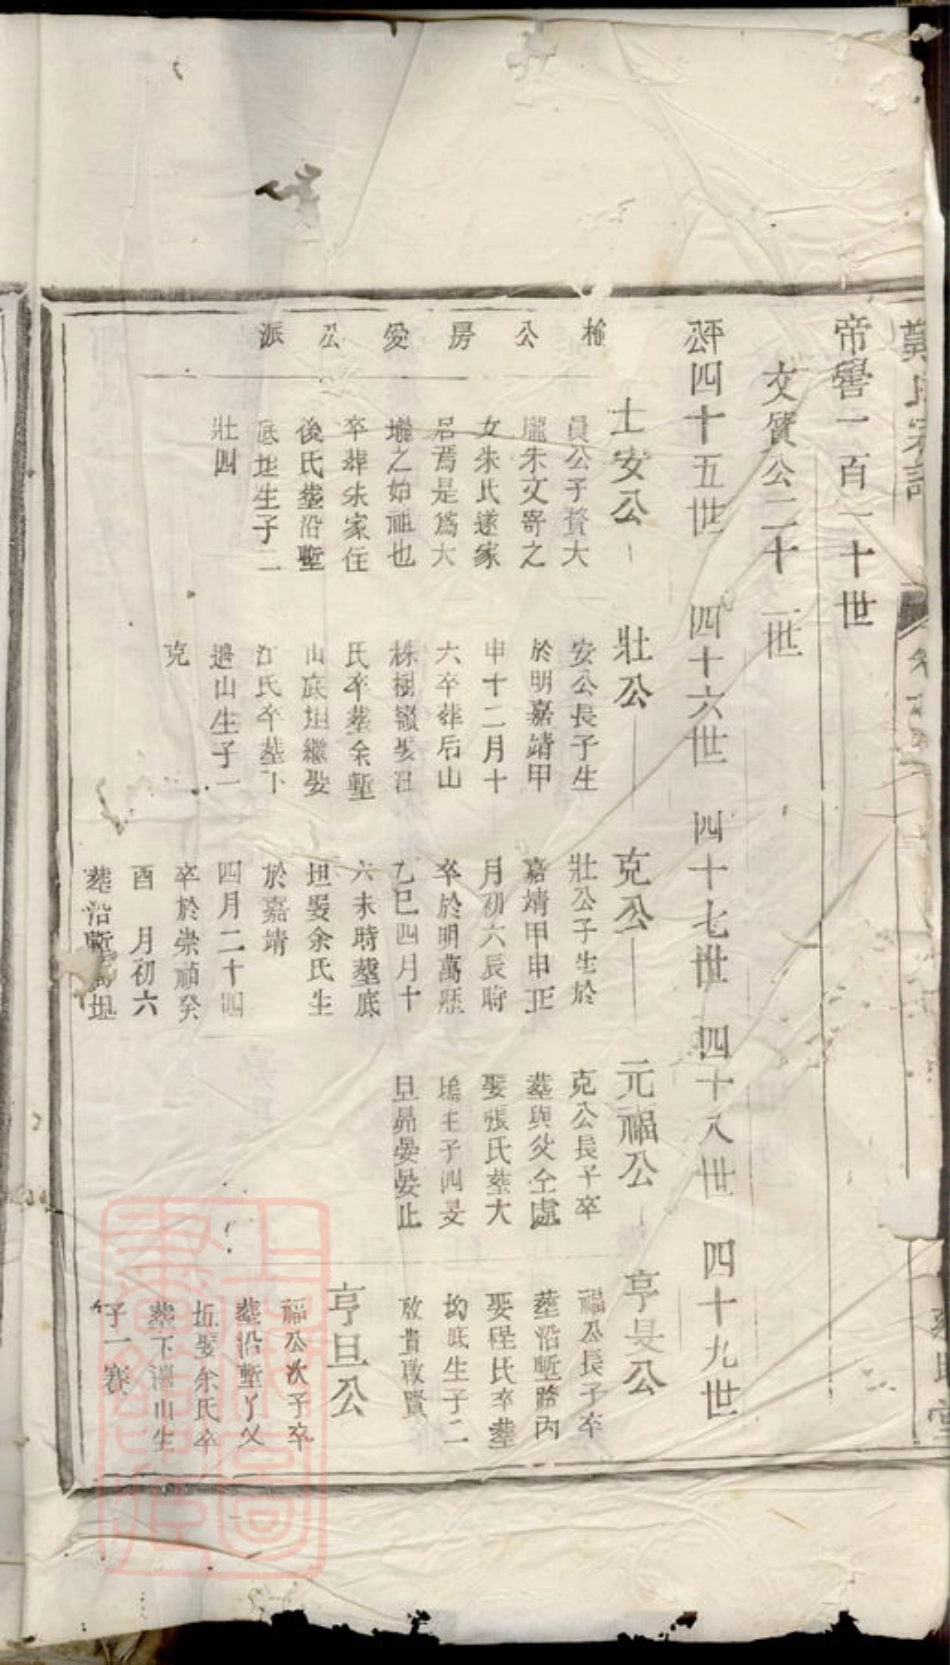 鄭氏宗譜
帝嚳一百一十世
文質公二十一世
公四十五世 四十六世 四十七世 四十八世 四十九世
公房愛公派
士安公
員公子贅大
朱文寄之
女朱氏遂家
居焉是為大
之始祖也
卒葬朱家住
後氏塟沿塹
底坦生子二
壯四
壯公
安公長子生
於明嘉靖甲
申十二月十
六卒葬后山
株樹嶺娶汪
氏卒塟余塹
山底坦繼娶
江氏卒塟下
邊山生子一
克
克公
壯公子生於
嘉靖甲申正
月初六辰時
卒於明萬歷
乙巳四月十
六未時塟底
坦娶余氏生
於嘉靖
四月二十四
卒於崇禎癸
酉 月初六
塟沿塹 坦
元福公
克公長子卒
塟與父仝處
娶張氏塟大
塢生子四旻
旦昴晏晏止
亨旻公
福公長子卒
塟沿塹 丙
娶程氏卒塟
坳底生子二
啟貴啟賢
亨旦公
福公次子卒
塟沿塹丫父
坵娶余氏卒
塟下灣山生
子一賽